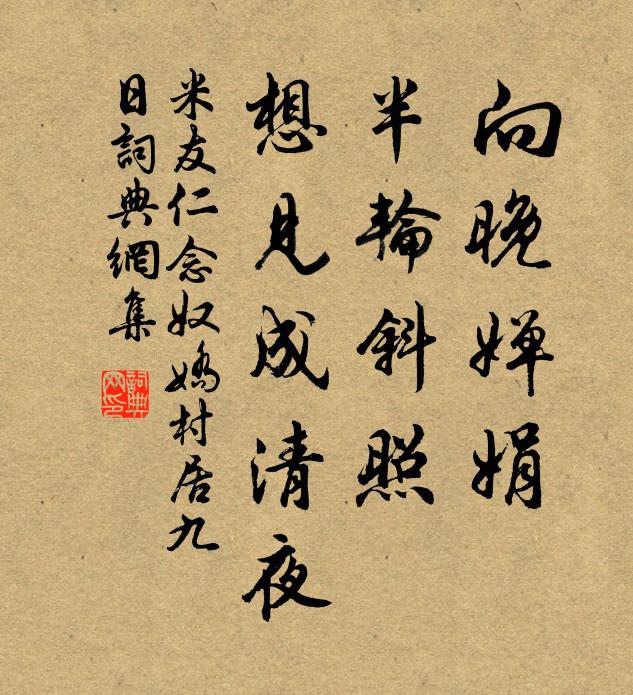 向晚婵娟
半輪斜照
想見成清夜
米友仁念奴嬌村居九
日詞典網集
詞典
网印